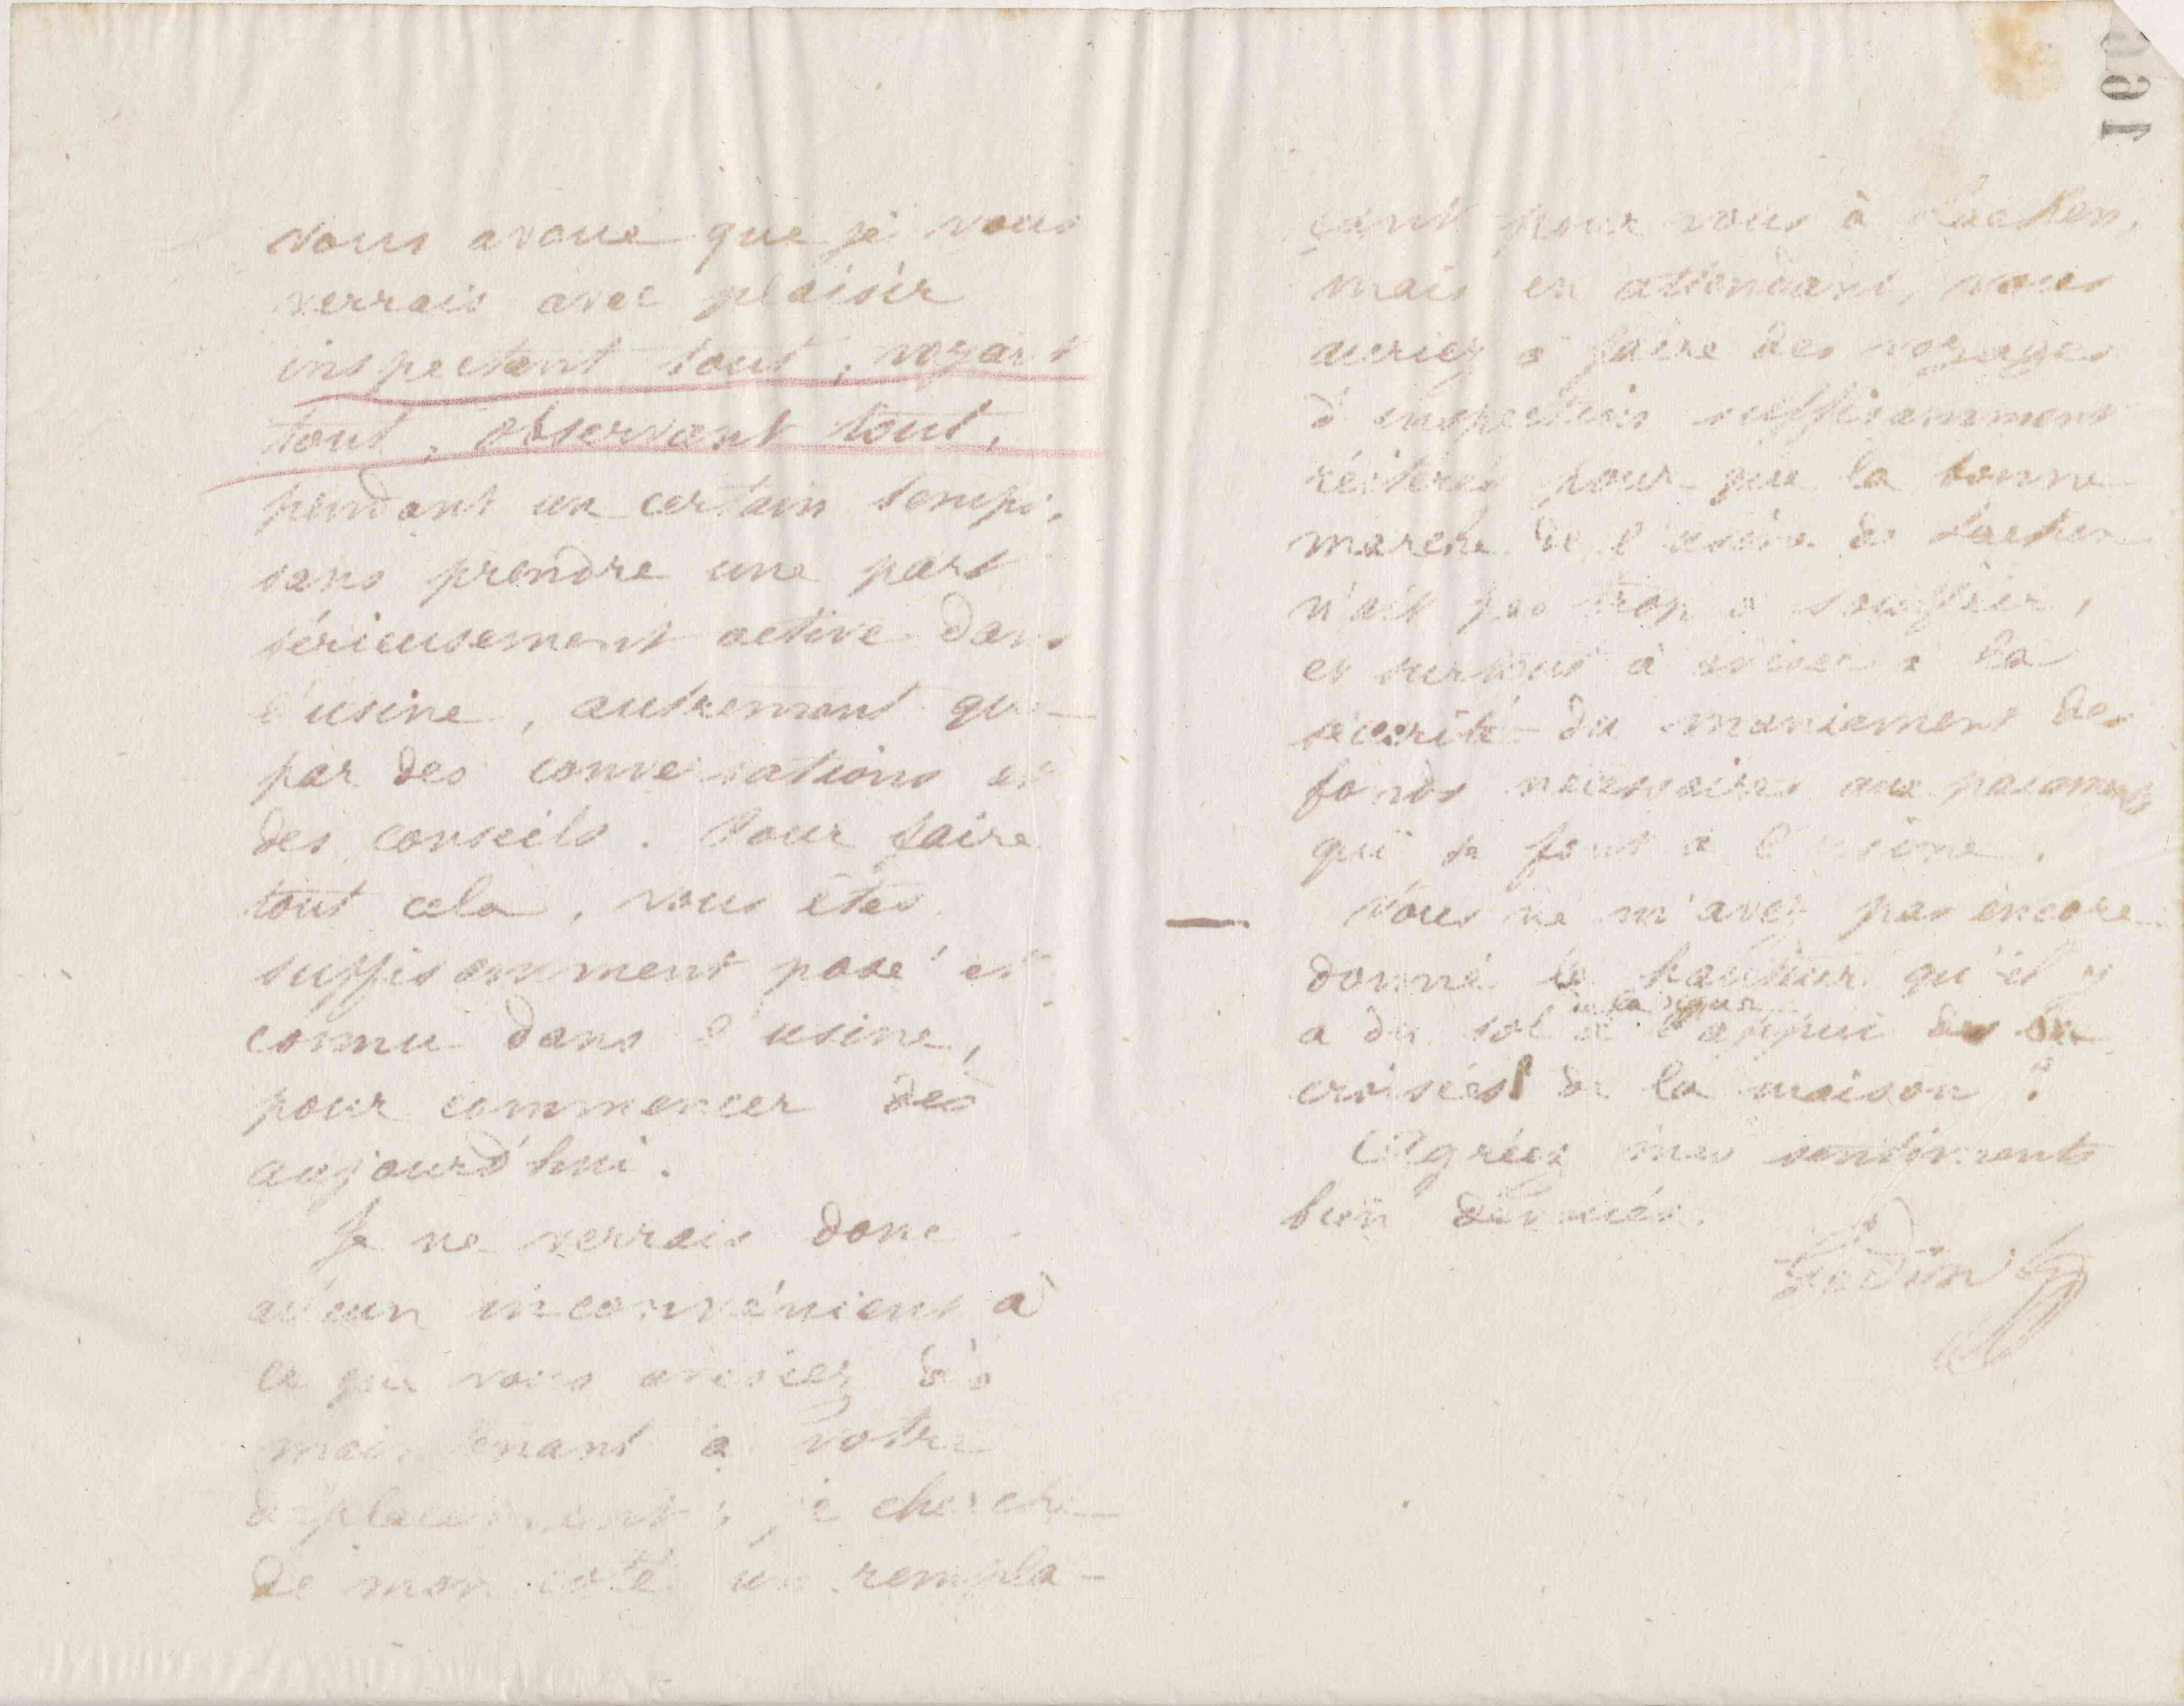 vous avoue que je vous
verrais avec plaisir
inspectant tout, voyant
tout, observant tout,
pendant un certain temps,
sans prendre une part
sérieusement active dans
l'usine, autrement que
par des conversations et
des conseils. Pour faire
tout cela, vous êtes
suffisamment posé et
connu dans l'usine,
pour commencer dès
aujourd'hui.
Je ne verrais donc
aucun inconvénient à
ce que vous avisiez dès
maintenant à votre
déplacement ; je cherche
de mon côté un rempla-
160
çant pour vous à Laeken,
mais en attendant, vous
auriez à faire des voyages
d'inspection suffisamment
réitérés pour que la bonne
marche de l'usine de Laeken
n'ait pas trop à souffrir,
et surtout à aviser à la
sécurité du maniement des
fonds nécessaires aux paiements
qui se font à l'usine.
Vous ne m'avez pas encore
donné la hauteur qu'il y
a du sol à l'appui des
croisées de la maison ?
Agréez mes sentiments
bien dévoués.
Godin